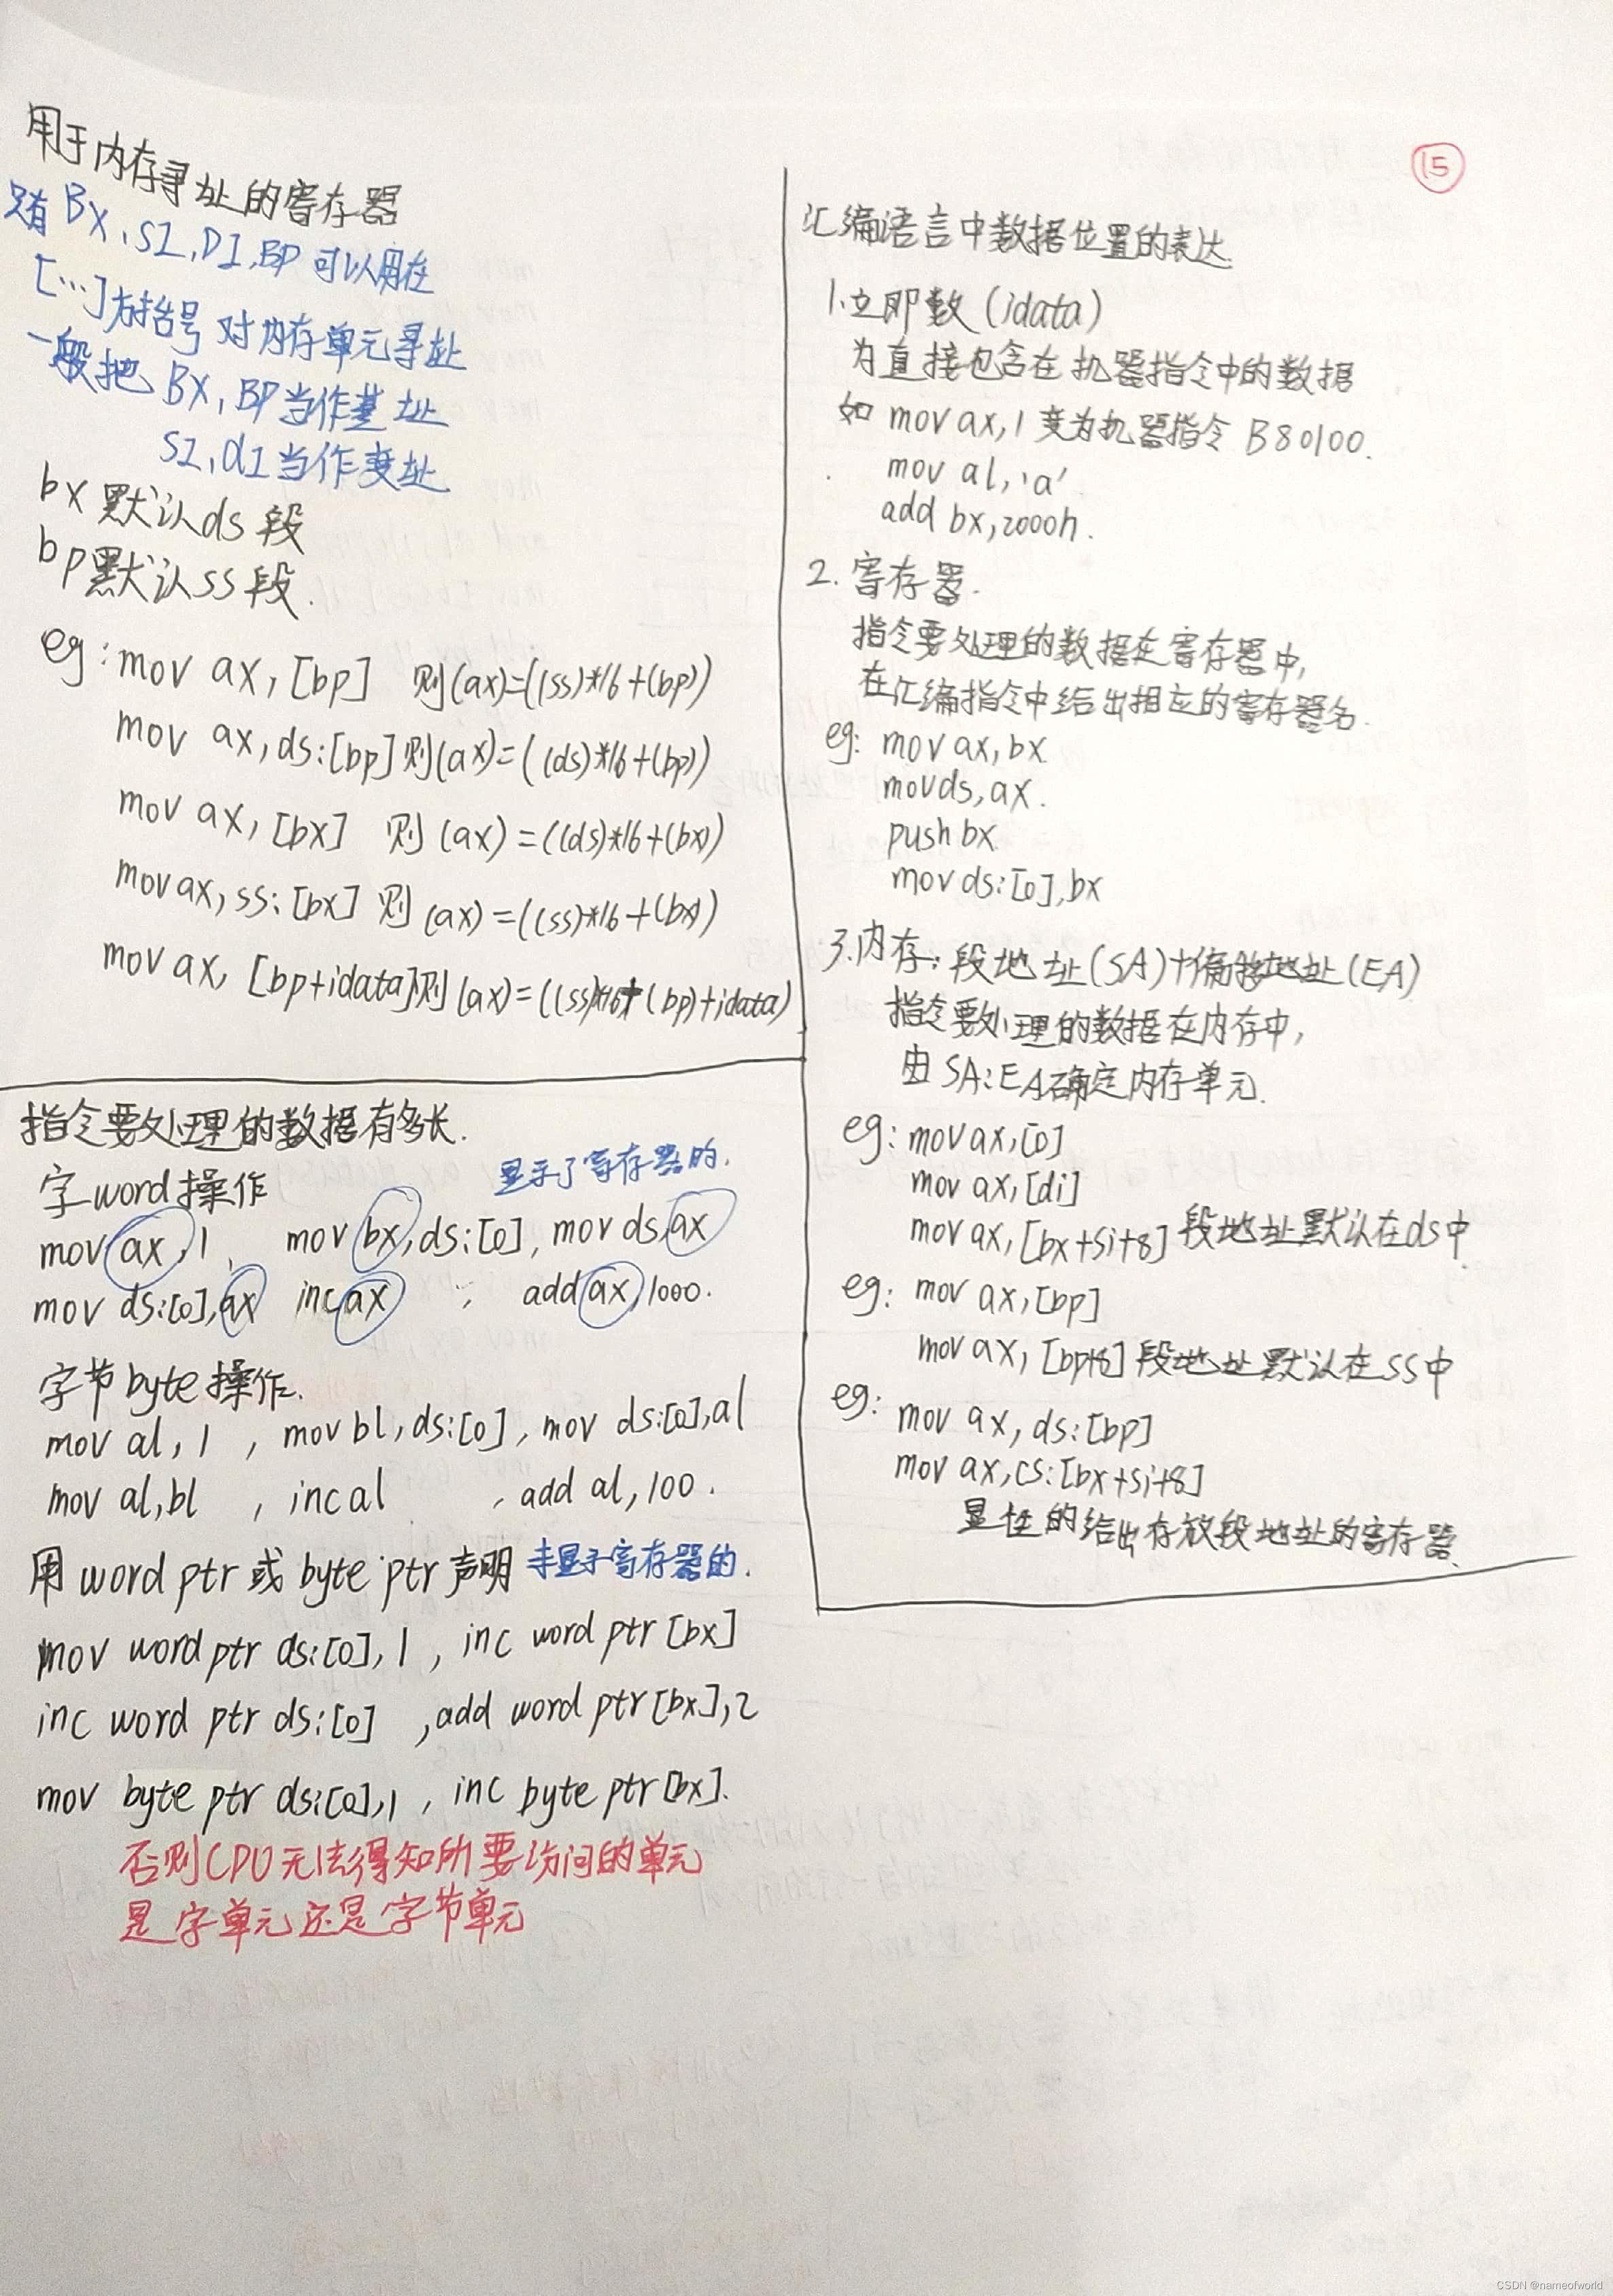 用于内存寻址的寄存器
只有 BX, SI, DI, BP 可以用在
[…]方括号 对内存单元寻址
一般把 BX, BP当作基址
SI, dI 当作变址
bx 默认ds 段
bp默认ss段.
eg: mov ax, [bp] 则(ax)=((ss)*16+(bp))
mov ax, ds:[bp] 则(ax)=((ds)*16+(bp))
mov ax, [bx] 则 (ax)=((ds)*16+(bx))
mov ax, ss:[bx] 则 (ax)=((ss)*16+(bx))
mov ax, [bp+idata]则(ax)=((ss)*16+(bp)+idata)
指令要处理的数据有多长.
字word操作
显示了寄存器的.
mov ax, 1, mov bx, ds:[0], mov ds,ax
mov ds:[0], ax inc ax , add ax, 1000.
字节byte操作.
mov al, 1 , mov bl, ds:[0], mov ds:[0], al
mov al, bl , inc al , add al, 100.
用 word ptr 或 byte ptr 声明 未显示寄存器的.
mov word ptr ds:[0], 1 , inc word ptr [bx]
inc word ptr ds:[0] , add word ptr [bx], 2
mov byte ptr ds:[0], 1 , inc byte ptr [bx].
否则CPU无法得知所要访问的单元
是字单元还是字节单元
15
汇编语言中数据位置的表达.
1.立即数 (idata)
为直接包含在机器指令中的数据
如 mov ax, 1 变为机器指令 B80100.
mov al, 'a'
add bx, 2000h.
2. 寄存器.
指令要处理的数据在寄存器中,
在汇编指令中给出相应的寄存器名.
eg: mov ax, bx
mov ds, ax.
push bx
mov ds:[0], bx
3.内存: 段地址(SA)+偏移地址(EA)
指令要处理的数据在内存中,
由 SA:EA确定内存单元.
eg: mov ax, [0]
mov ax, [di]
mov ax, [bx+si+8] 段地址默认在ds中
eg: mov ax, [bp]
mov ax, [bp+8] 段地址默认在ss中
eg: mov ax, ds:[bp]
mov ax, cs:[bx+si+8]
显性的给出存放段地址的寄存器.
CSDN @nameofworld